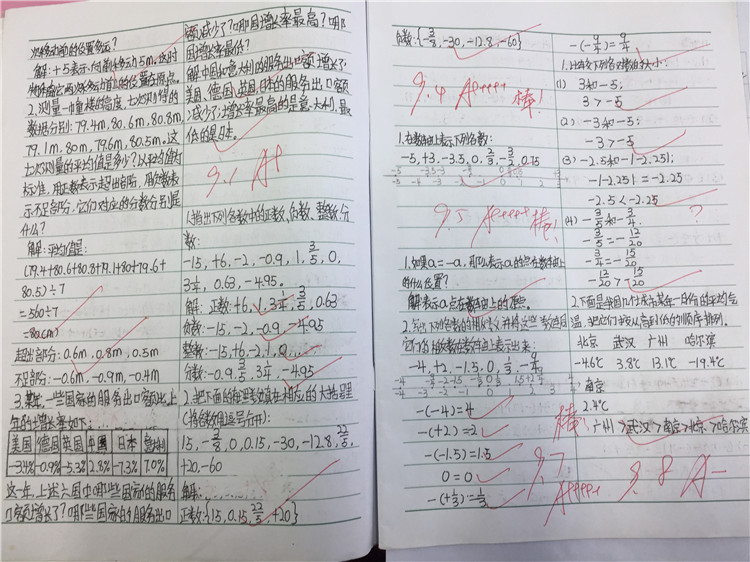 次移动前的位置多远?
解:+5表示:向前移动5m,这时
物体离它两次移动前的位置在原点。
2.测量一幢楼的高度,七次测得的
数据分别:79.4m,80.6m,80.8m,
79.1m,80m,79.6m,80.5m。这
七次测量的平均值是多少?以平均值为
标准,用正数表示超出部分,用负数表
示不足部分,它们对应的分数分别是
什么?
解:平均值是:
(79.4+80.6+80.8+79.1+80+79.6+
80.5)÷7
=560÷7
=80(m)
超出部分:0.6m,0.8m,0.5m
不足部分:-0.6m,-0.9m,-0.4m
3.某年,一些国家的服务出口额比上
年的增长率如下:
美国 德国 英国 中国 日本 意大利
-3.4% -0.9% -5.3% 2.8% -7.3% 7.0%
这一年,上述六国中哪些国家的服务
口额增长了?哪些国家的服务出口
额减少了?哪国增长率最高?哪
国增长率最低?
解:中国和意大利的服务出口额增长了
美国,德国,英国,日本的服务出口额
减少了;增长率最高的是意大利,最
低的是日本。
9.1 A+
1.指出下列各数中的正数、负数、整数、分
数:
-15, +6, -2, -0.9, 1, 3/5, 0,
3 1/4, 0.63, -4.95。
解:正数:+6, 1, 3 1/4, 3/5, 0.63
负数:-15, -2, -0.9, -4.95
整数:-15, +6, -2, 1, 0
分数:-0.9, 3/5, 3 1/4, -4.95
2.把下面的有理数填在相应的大括号里
(将各数用逗号分开):
15, -3/8, 0, 0.15, -30, -12.8, 22/5,
+20, -60
解:
正数:{15, 0.15, 22/5, +20}
负数:{-3/8, -30, -12.8, -60}
9.4 A+++++ 棒!
1.在数轴上表示下列各数:
-5, +3, -3.5, 0, 2/3, -3/2, 0.75
-5 -4 -3 -2 -1 0 1 2
9.5 A+++++ 棒!
1.如果a=-a,那么表示a的点在数轴上
的什么位置?
解:表示a点在数轴上的原点。
2.写出下列各数的相反数,并将这些数连同
它们的相反数在数轴上表示出来:
-4, +2, -1.5, 0, 1/3, -9/4
-4 -3 -2 -1 0 1 2 3 4
-(-4)=4
-(+2)=2
-(-1.5)=1.5
0=0
-(+1/3)=1/3
-(-9/4)=9/4
1.比较下列各对数的大小:
(1) 3和-5;
3>-5
(2) -3和-5;
-3>-5
(3) -2.5和-|-2.25|;
-|-2.25|=-2.25
-2.5<-2.25
(4) -3/5和-3/4.
-3/5=-12/20
-3/4=-15/20
-12/20>-15/20
?
2.下面是我国几个城市某年一月份的平均气
温,把它们按从高到低的顺序排列。
北京 武汉 广州 哈尔滨
-4.6℃ 3.8℃ 13.1℃ -19.4℃
南京
2.4℃
广州>武汉>南京>北京>哈尔滨
棒!
9.7
A+++++
9.8 A-